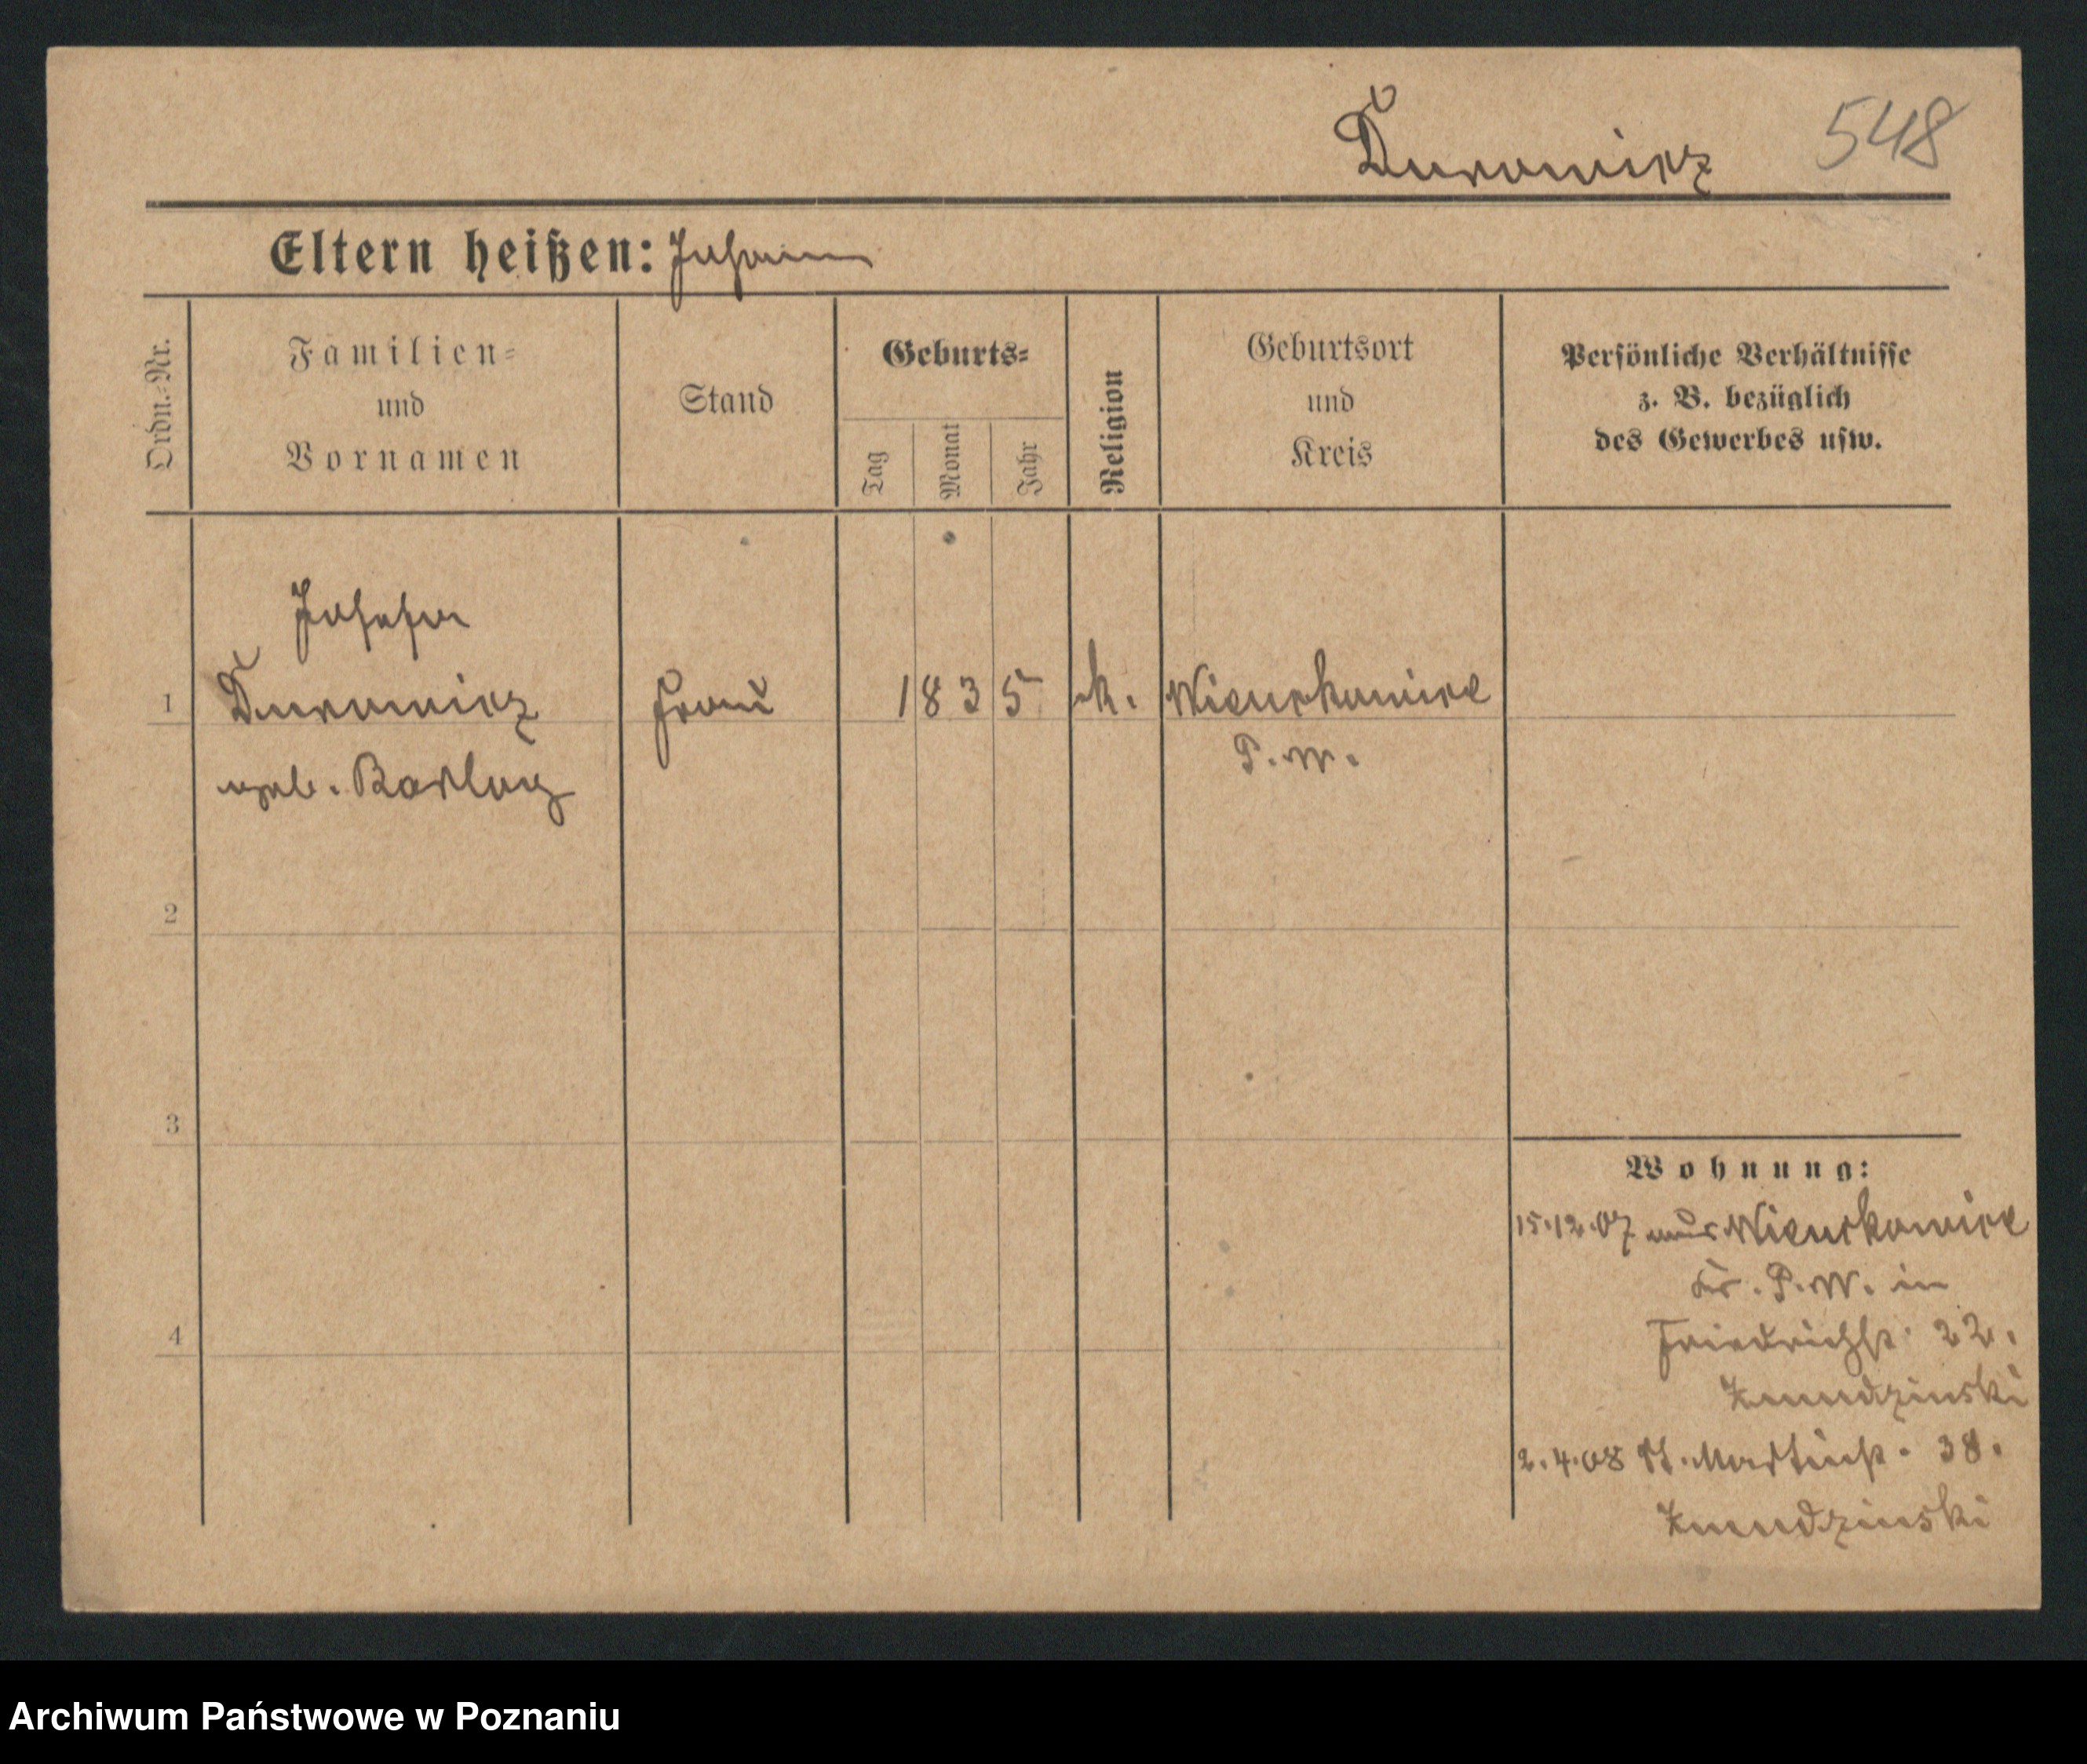 Durowicz 548
Eltern heißen: Johann
Ordn.-Nr.
Familien-
und
Vornamen
Stand
Geburts-
Tag
Monat
Jahr
Religion
Geburtsort
und
Kreis
Persönliche Verhältnisse
z. B. bezüglich
des Gewerbes usw.
Josefa
1 Durowicz Frau 1835 k. Wienckowice
geb. Bartog P. W.
2
3
4
Wohnung:
15.12.07 aus Wienckowice
Kr. P. W. in
Friedrichstr. 22.
Zmudzinski
2.4.08 St. Martinstr. 38.
Zmudzinski
Archiwum Państwowe w Poznaniu